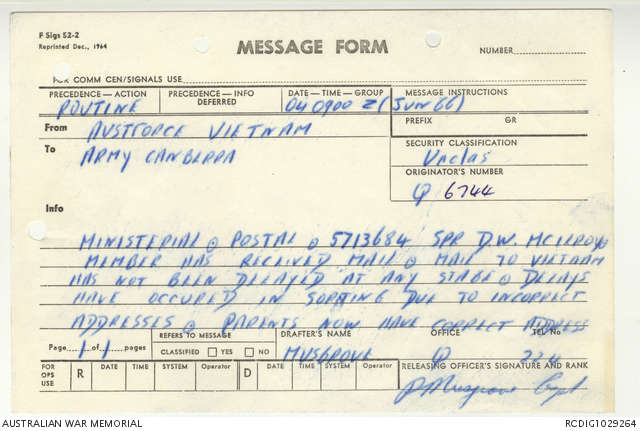 F Sigs 52-2
Reprinted Dec., 1964
MESSAGE FORM
NUMBER
FOR COMM CEN/SIGNALS USE
PRECEDENCE—ACTION
ROUTINE
PRECEDENCE—INFO
DEFERRED
DATE—TIME—GROUP
040900Z (JUN 66)
MESSAGE INSTRUCTIONS
PREFIX GR
From AUSTFORCE VIETNAM
To ARMY CANBERRA
SECURITY CLASSIFICATION
Unclas
ORIGINATOR'S NUMBER
Q 6744
Info
MINISTERIAL @ POSTAL @ 5713684 SPR D.W. MCILROY @
MEMBER HAS RECEIVED MAIL @ MAIL TO VIETNAM
HAS NOT BEEN DELAYED AT ANY STAGE @ DELAYS
HAVE OCCURED IN SORTING DUE TO INCORRECT
ADDRESSES @ PARENTS NOW HAVE CORRECT ADDRESS
Page 1 of 1 pages
REFERS TO MESSAGE
CLASSIFIED YES NO
DRAFTER'S NAME
MUSGROVE
OFFICE
Q
TEL No
224
FOR OPS USE
R DATE TIME SYSTEM Operator
D DATE TIME SYSTEM Operator
RELEASING OFFICER'S SIGNATURE AND RANK
Musgrove Capt
AUSTRALIAN WAR MEMORIAL
RCDIG1029264